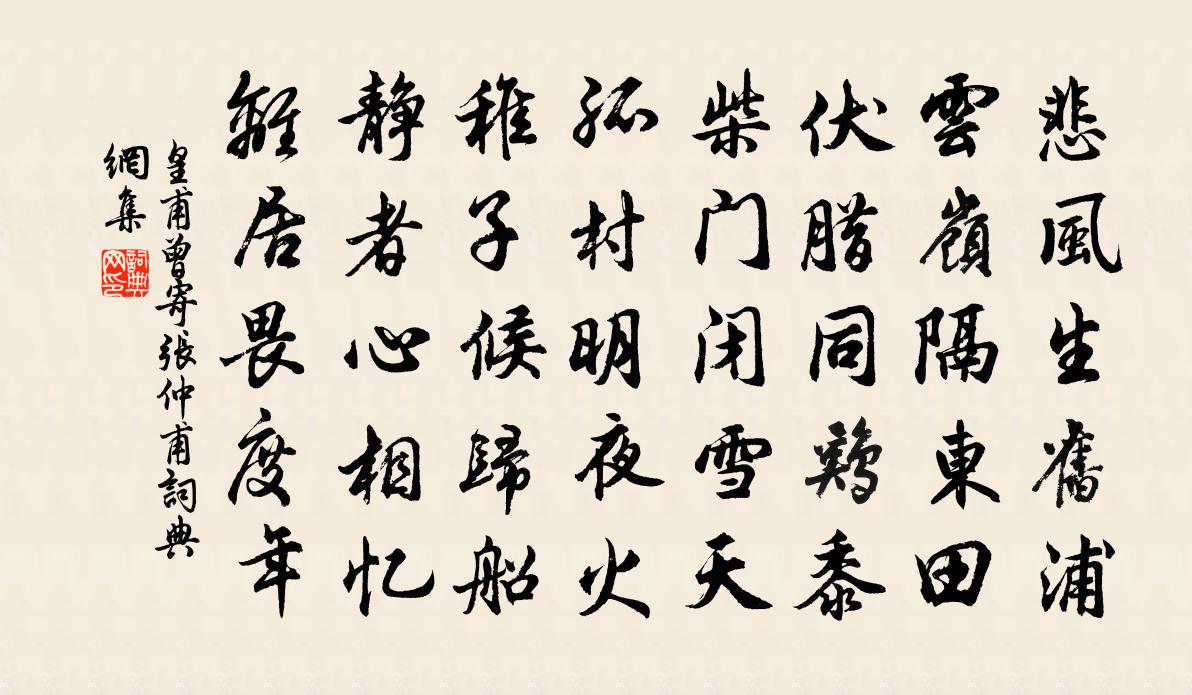 悲風生舊浦
雲嶺隔東田
伏腊同鷄黍
柴门闭雪天
孤村明夜火
稚子候歸船
静者心相忆
離居畏度年
皇甫曾寄張仲甫詞典
網集
詞典
网印